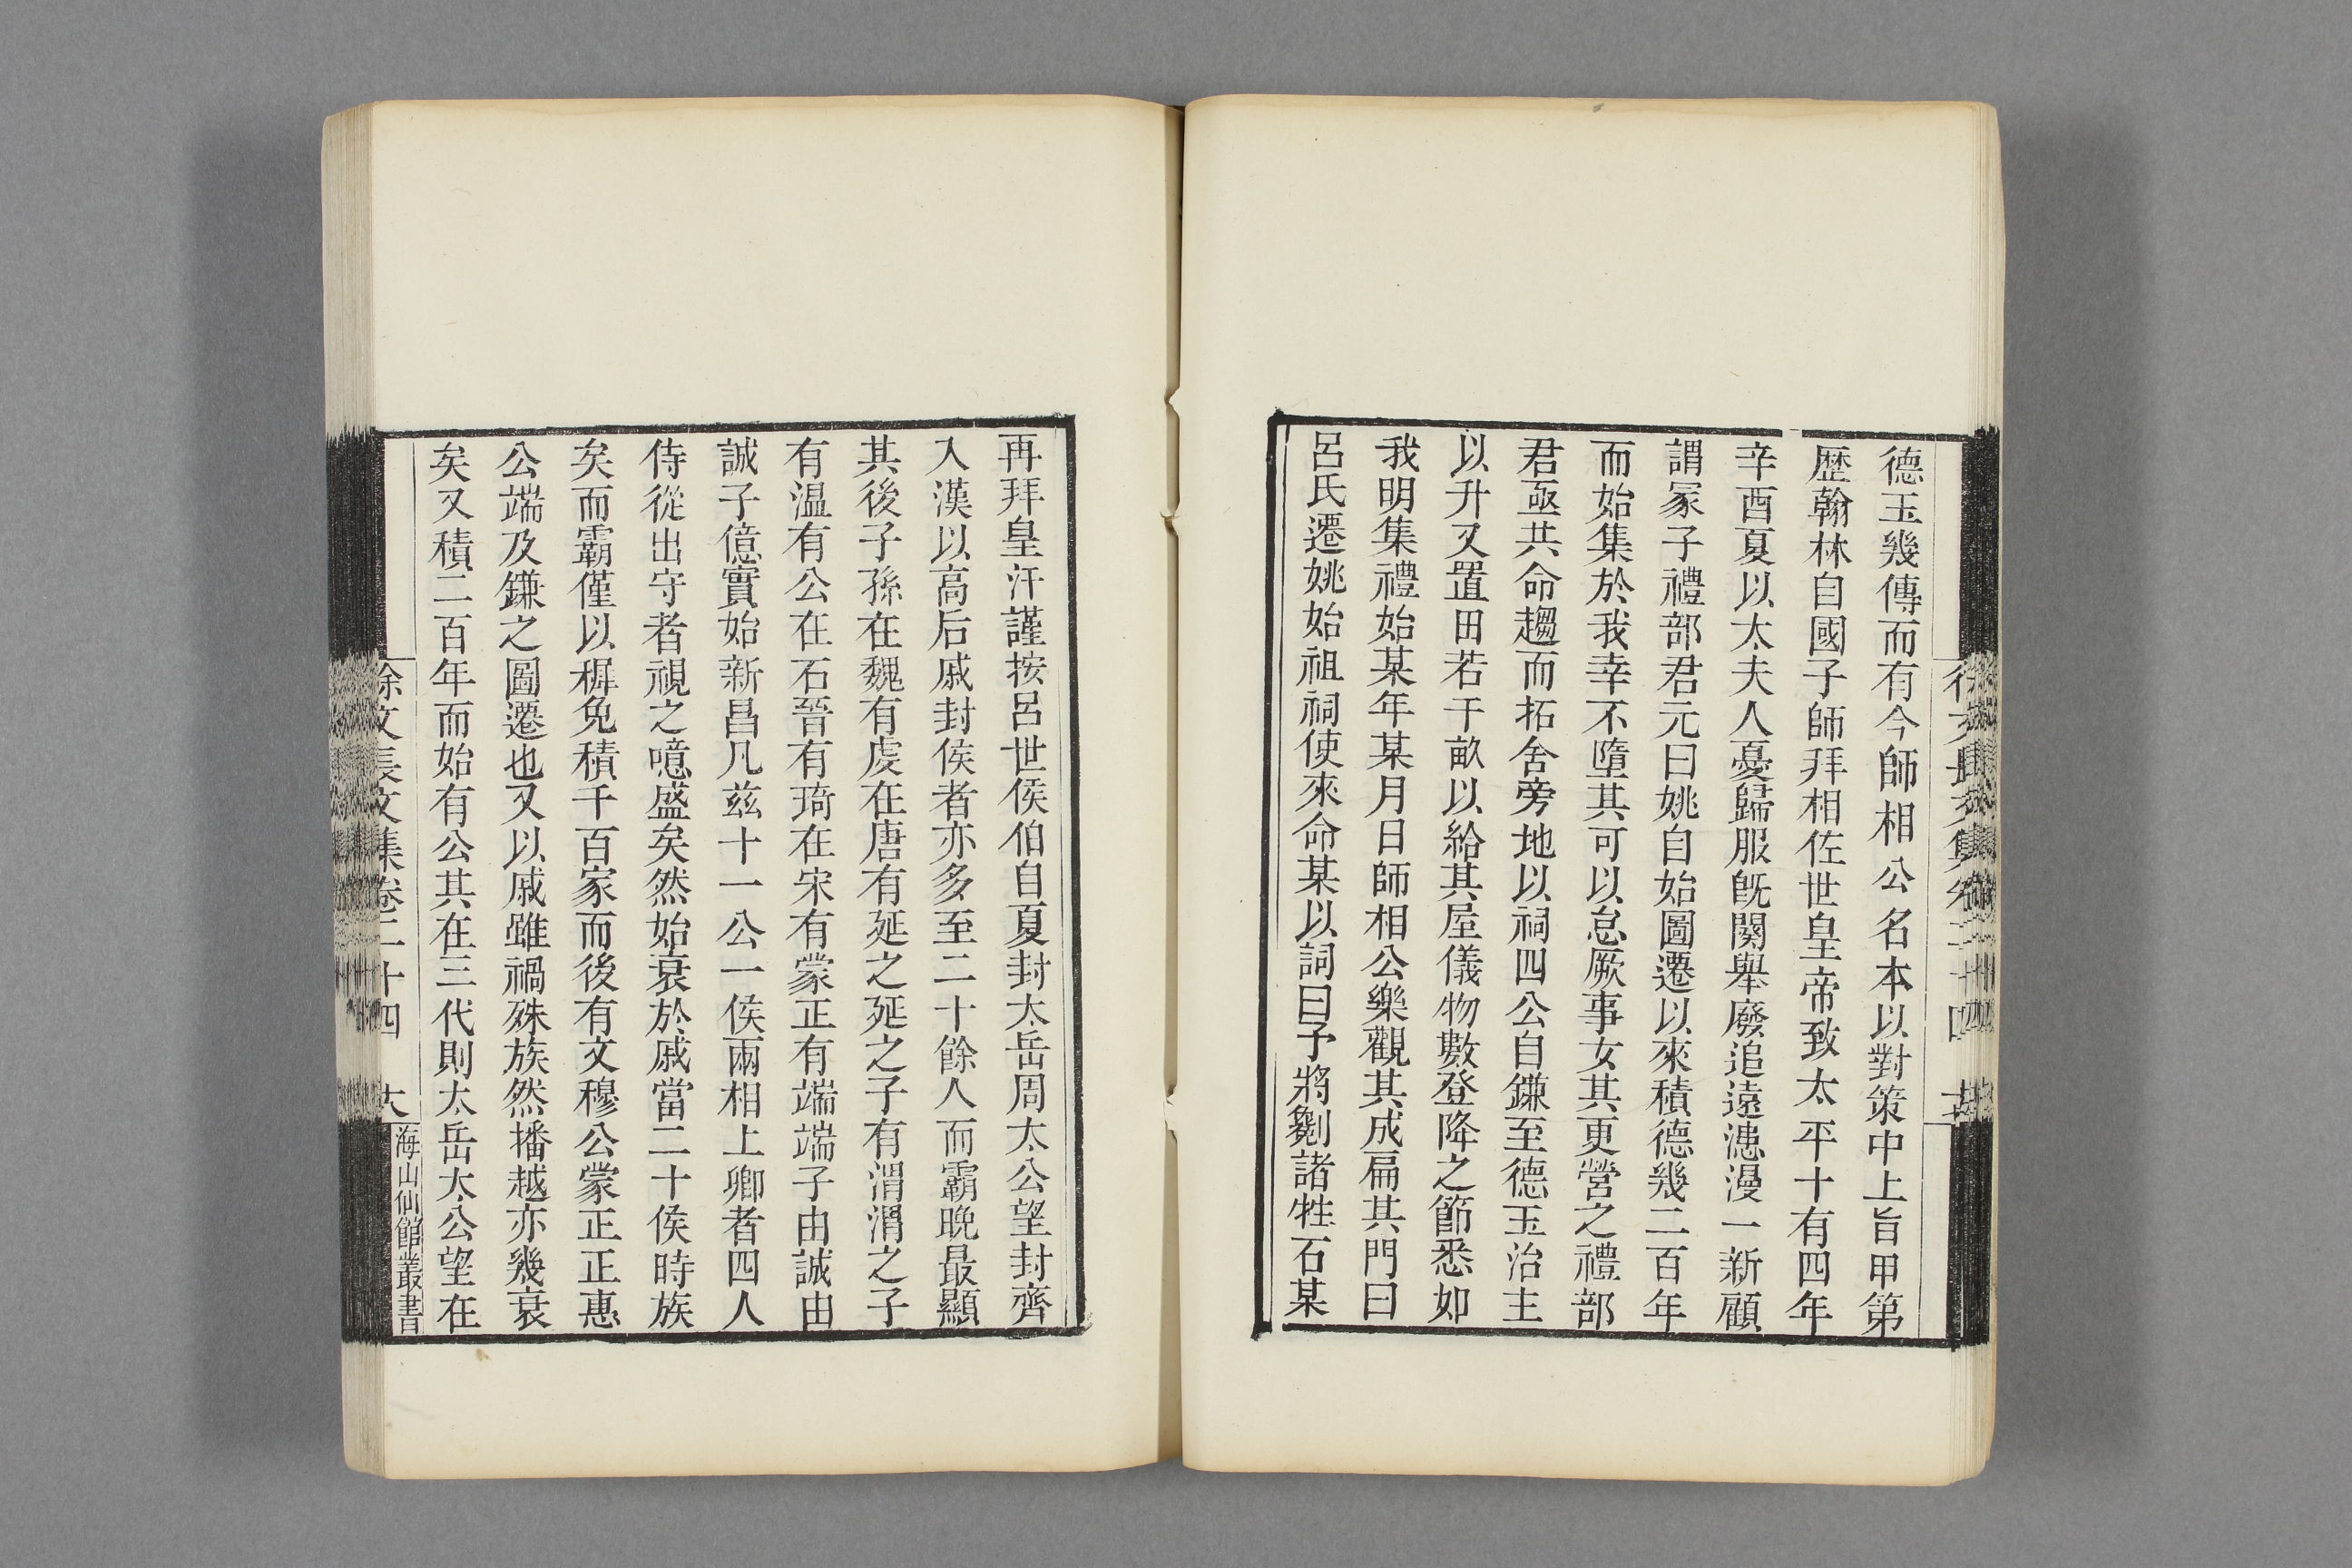 德玉幾傳而有今師相公名本以對策中上旨甲第
歷翰林自國子師拜相佐世皇帝致太平十有四年
辛酉夏以太夫人憂歸服旣闋舉廢追遠漶漫一新顧
謂冢子禮部君元曰姚自始圖遷以來積德幾二百年
而始集於我幸不墮其可以怠厥事女其更營之禮部
君亟共命趨而拓舍旁地以祠四公自鎌至德玉治主
以升又置田若干畝以給其屋儀物數登降之節悉如
我明集禮始某年某月日師相公樂觀其成扁其門曰
呂氏遷姚始祖祠使來命某以詞曰予將劖諸牲石某
再拜皇汗謹按呂世侯伯自夏封太岳周太公望封齊
入漢以高后戚封侯者亦多至二十餘人而霸晚最顯
其後子孫在魏有虔在唐有延之延之子有渭渭之子
有溫有公在石晉有琦在宋有蒙正有端端子由誠由
誠子億實始新昌凡茲十一公一侯兩相上卿者四人
侍從出守者視之噫盛矣然始衰於戚當二十侯時族
矣而霸僅以穉免積千百家而後有文穆公蒙正正惠
公端及鎌之圖遷也又以戚雖禍殊族然播越亦幾衰
矣又積二百年而始有公其在三代則太岳太公望在
徐文長文集卷二十四
大
海山仙館叢書